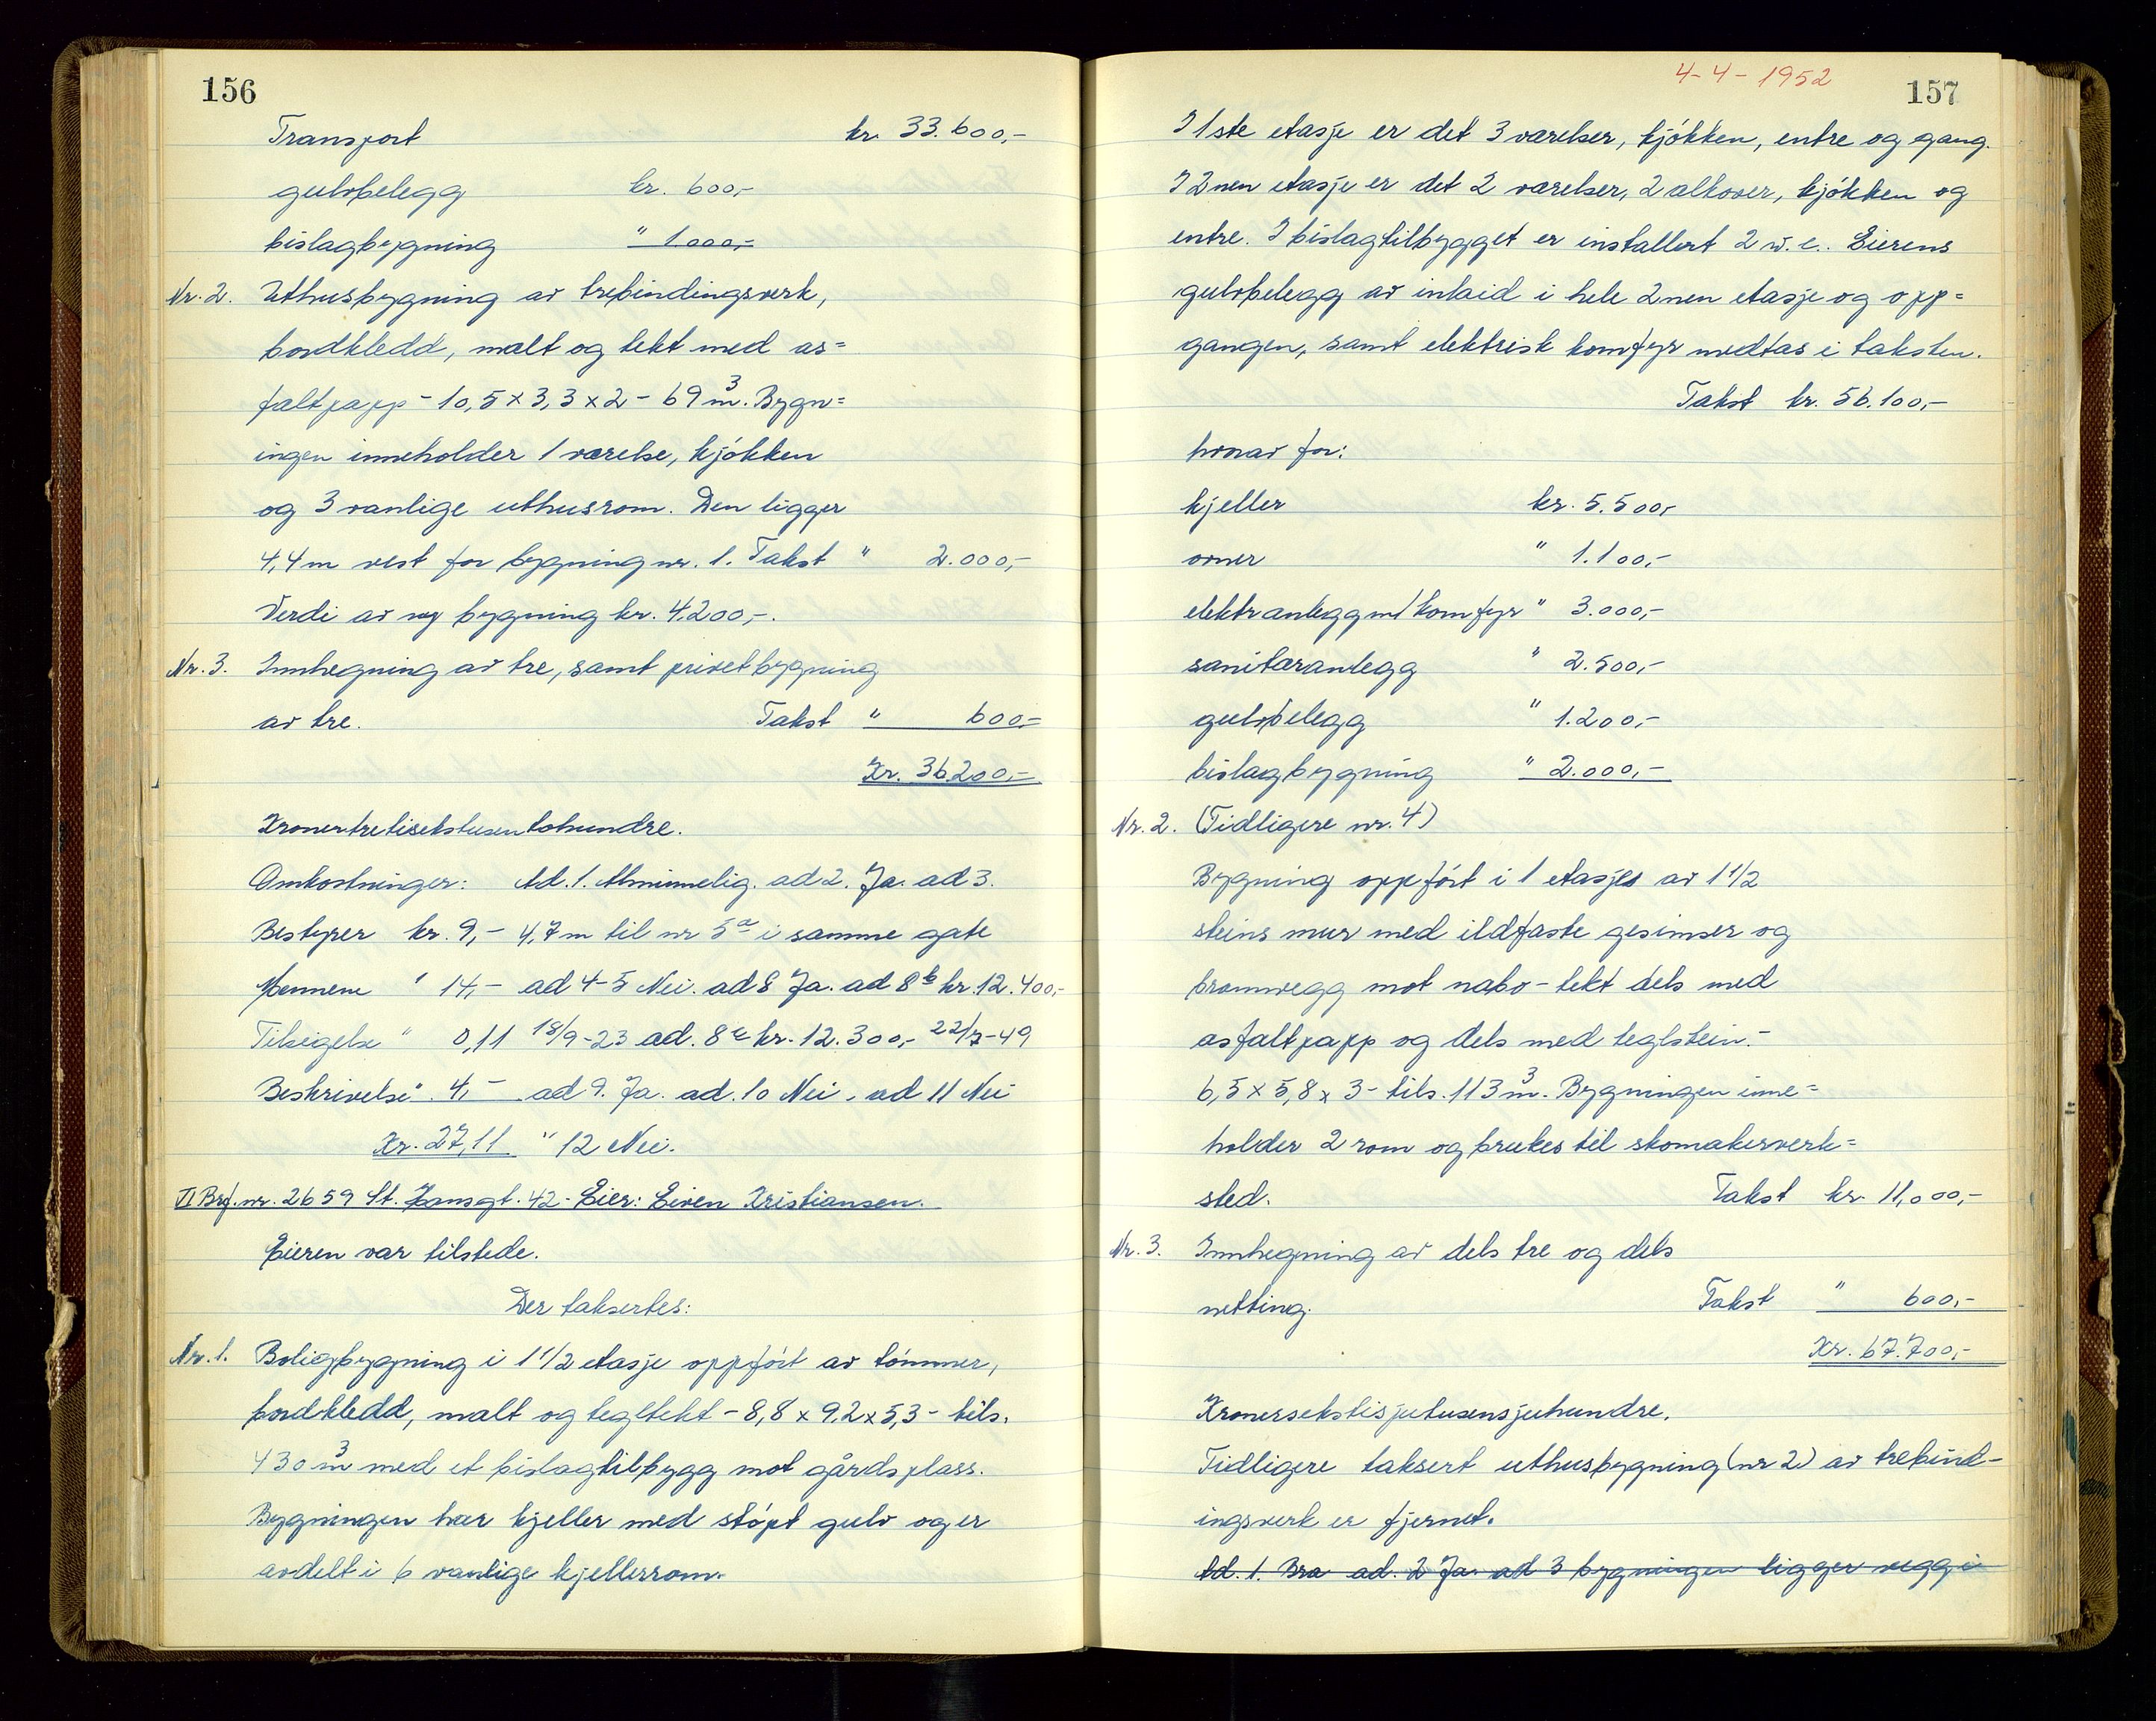 156
Transport kr. 33.600,-
gulvbelegg kr. 600,-
bislagbygning " 1000,-
Nr. 2. Uthusbygning av trebindingsverk,
bordkledd, malt og tekt med as=
faltpapp - 10,5 x 3,3 x 2 - 69 m³. Bygn=
ingen inneholder 1 værelse, kjøkken
og 3 vanlige uthusrom. Den ligger
4,4 m vest for bygning nr. 1. Takst " 2.000,-
Verdi av ny bygning kr. 4.200,-.
Nr. 3. Innhegning av tre, samt privetbygning
av tre. Takst " 600,-
Kr. 36.200,-
Kronertretisekstusentohundre.
Omkostninger: Ad. 1. Alminnelig. ad 2. Ja. ad 3.
Bestyrer kr. 9,- 4,7 m til nr 5a i samme gate
Mennene " 14,- ad 4-5 Nei. ad 8 Ja. ad 8b kr. 12.400,-
Tilsigelse " 0,11 18/9-23 ad. 8c kr. 12.300,- 22/7-49
Beskrivelse " 4,- ad 9. Ja. ad. 10 Nei. ad 11 Nei
Kr. 27,11 " 12 Nei.
II Brf. nr. 2659 St. Hansgt. 42 - Eier: Eiven Kristiansen.
Eieren var tilstede.
Der taksertes:
Nr. 1. Boligbygning i 1 1/2 etasje oppført av tømmer,
bordkledd, malt og tegltekt - 8,8 x 9,2 x 5,3 - tils.
430 m³ med et bislagtilbygg mot gårdsplass.
Bygningen har kjeller med støpt gulv og er
avdelt i 6 vanlige kjellerrom.
4-4-1952
157
I 1ste etasje er det 3 værelser, kjøkken, entre og gang.
I 2nen etasje er det 2 værelser, 2 alkover, kjøkken og
entre. I bislagtilbygget er installert 2 w.c. Eierens
gulvbelegg av inlaid i hele 2nen etasje og opp=
gangen, samt elektrisk komfyr medtas i taksten.
Takst kr. 56.100,-
hvorav for:
kjeller kr. 5.500,-
ovner " 1.100,-
elektr anlegg m/komfyr " 3.000,-
sanitæranlegg " 2.500,-
gulvbelegg " 1.200,-
bislagbygning " 2.000,-
Nr. 2. (Tidligere nr. 4)
Bygning oppført i 1 etasjes av 1 1/2
steins mur med ildfaste gesimser og
brannvegg mot nabo - tekt dels med
asfaltpapp og dels med teglstein. -
6,5 x 5,8 x 3 - tils. 113 m³. Bygningen inne=
holder 2 rom og brukes til skomakerverk=
sted. Takst kr. 11,000,-
Nr. 3. Innhegning av dels tre og dels
netting. Takst " 600,-
Kr. 67.700,-
Kronersekstisjutusensjuhundre.
Tidligere taksert uthusbygning (nr 2) av trebind-
ingsverk er fjernet.
Ad. 1. Bra ad. 2 Ja. ad 3 bygningen ligger vegg i